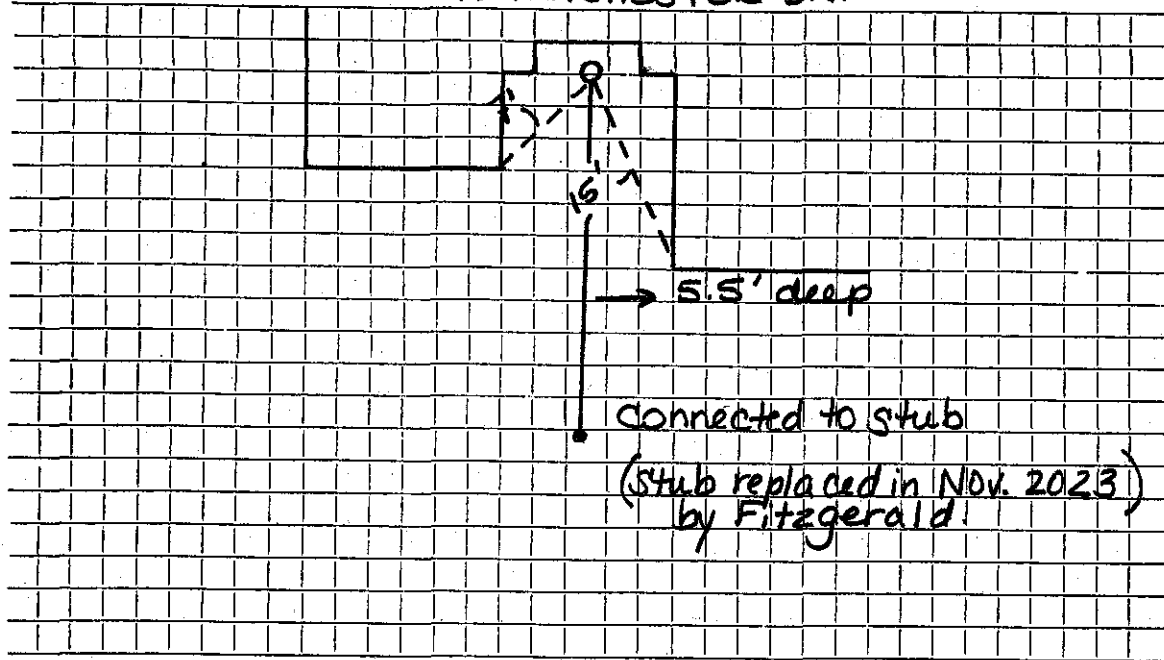 15'
5.5' deep
Connected to stub
(stub replaced in Nov. 2023)
by Fitzgerald.